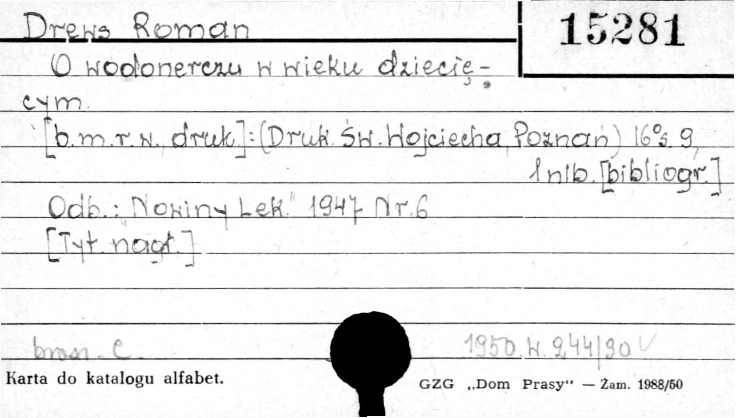 Drews Roman
15281
O wodonerczu w wieku dziecię-
cym.
[b.m.r.w. druk]: (Druk. Św. Wojciecha, Poznań) 16°s. 9,
1 nlb. [bibliogr.]
Odb.: "Nowiny Lek." 1947 Nr. 6
[Tyt. nagł.]
brosz. C.
1950.W.244/90 V
Karta do katalogu alfabet.
GZG „Dom Prasy“ — Żam. 1988/50